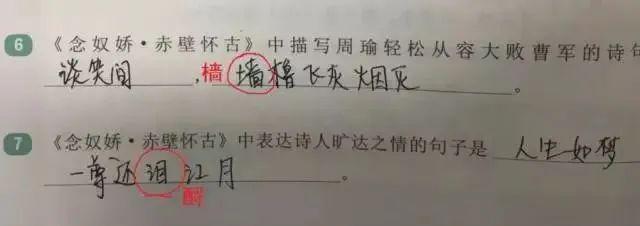 6 《念奴娇·赤壁怀古》中描写周瑜轻松从容大败曹军的诗句
谈笑间，樯 墙橹飞灰烟灭。
7 《念奴娇·赤壁怀古》中表达诗人旷达之情的句子是 人生如梦
一尊还泪江月。
酹